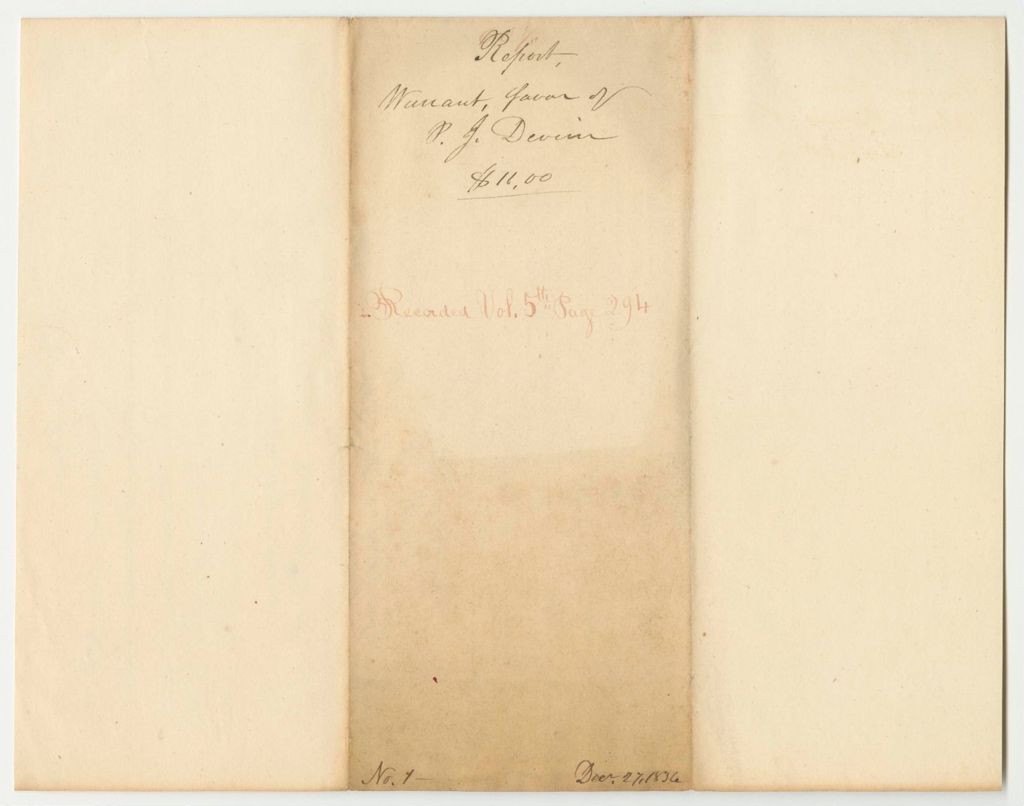 Report,
Warrant, favor of
P. J. Devine
$11,00
Recorded Vol. 5th Page 294
No. 7
Decr. 27, 1836